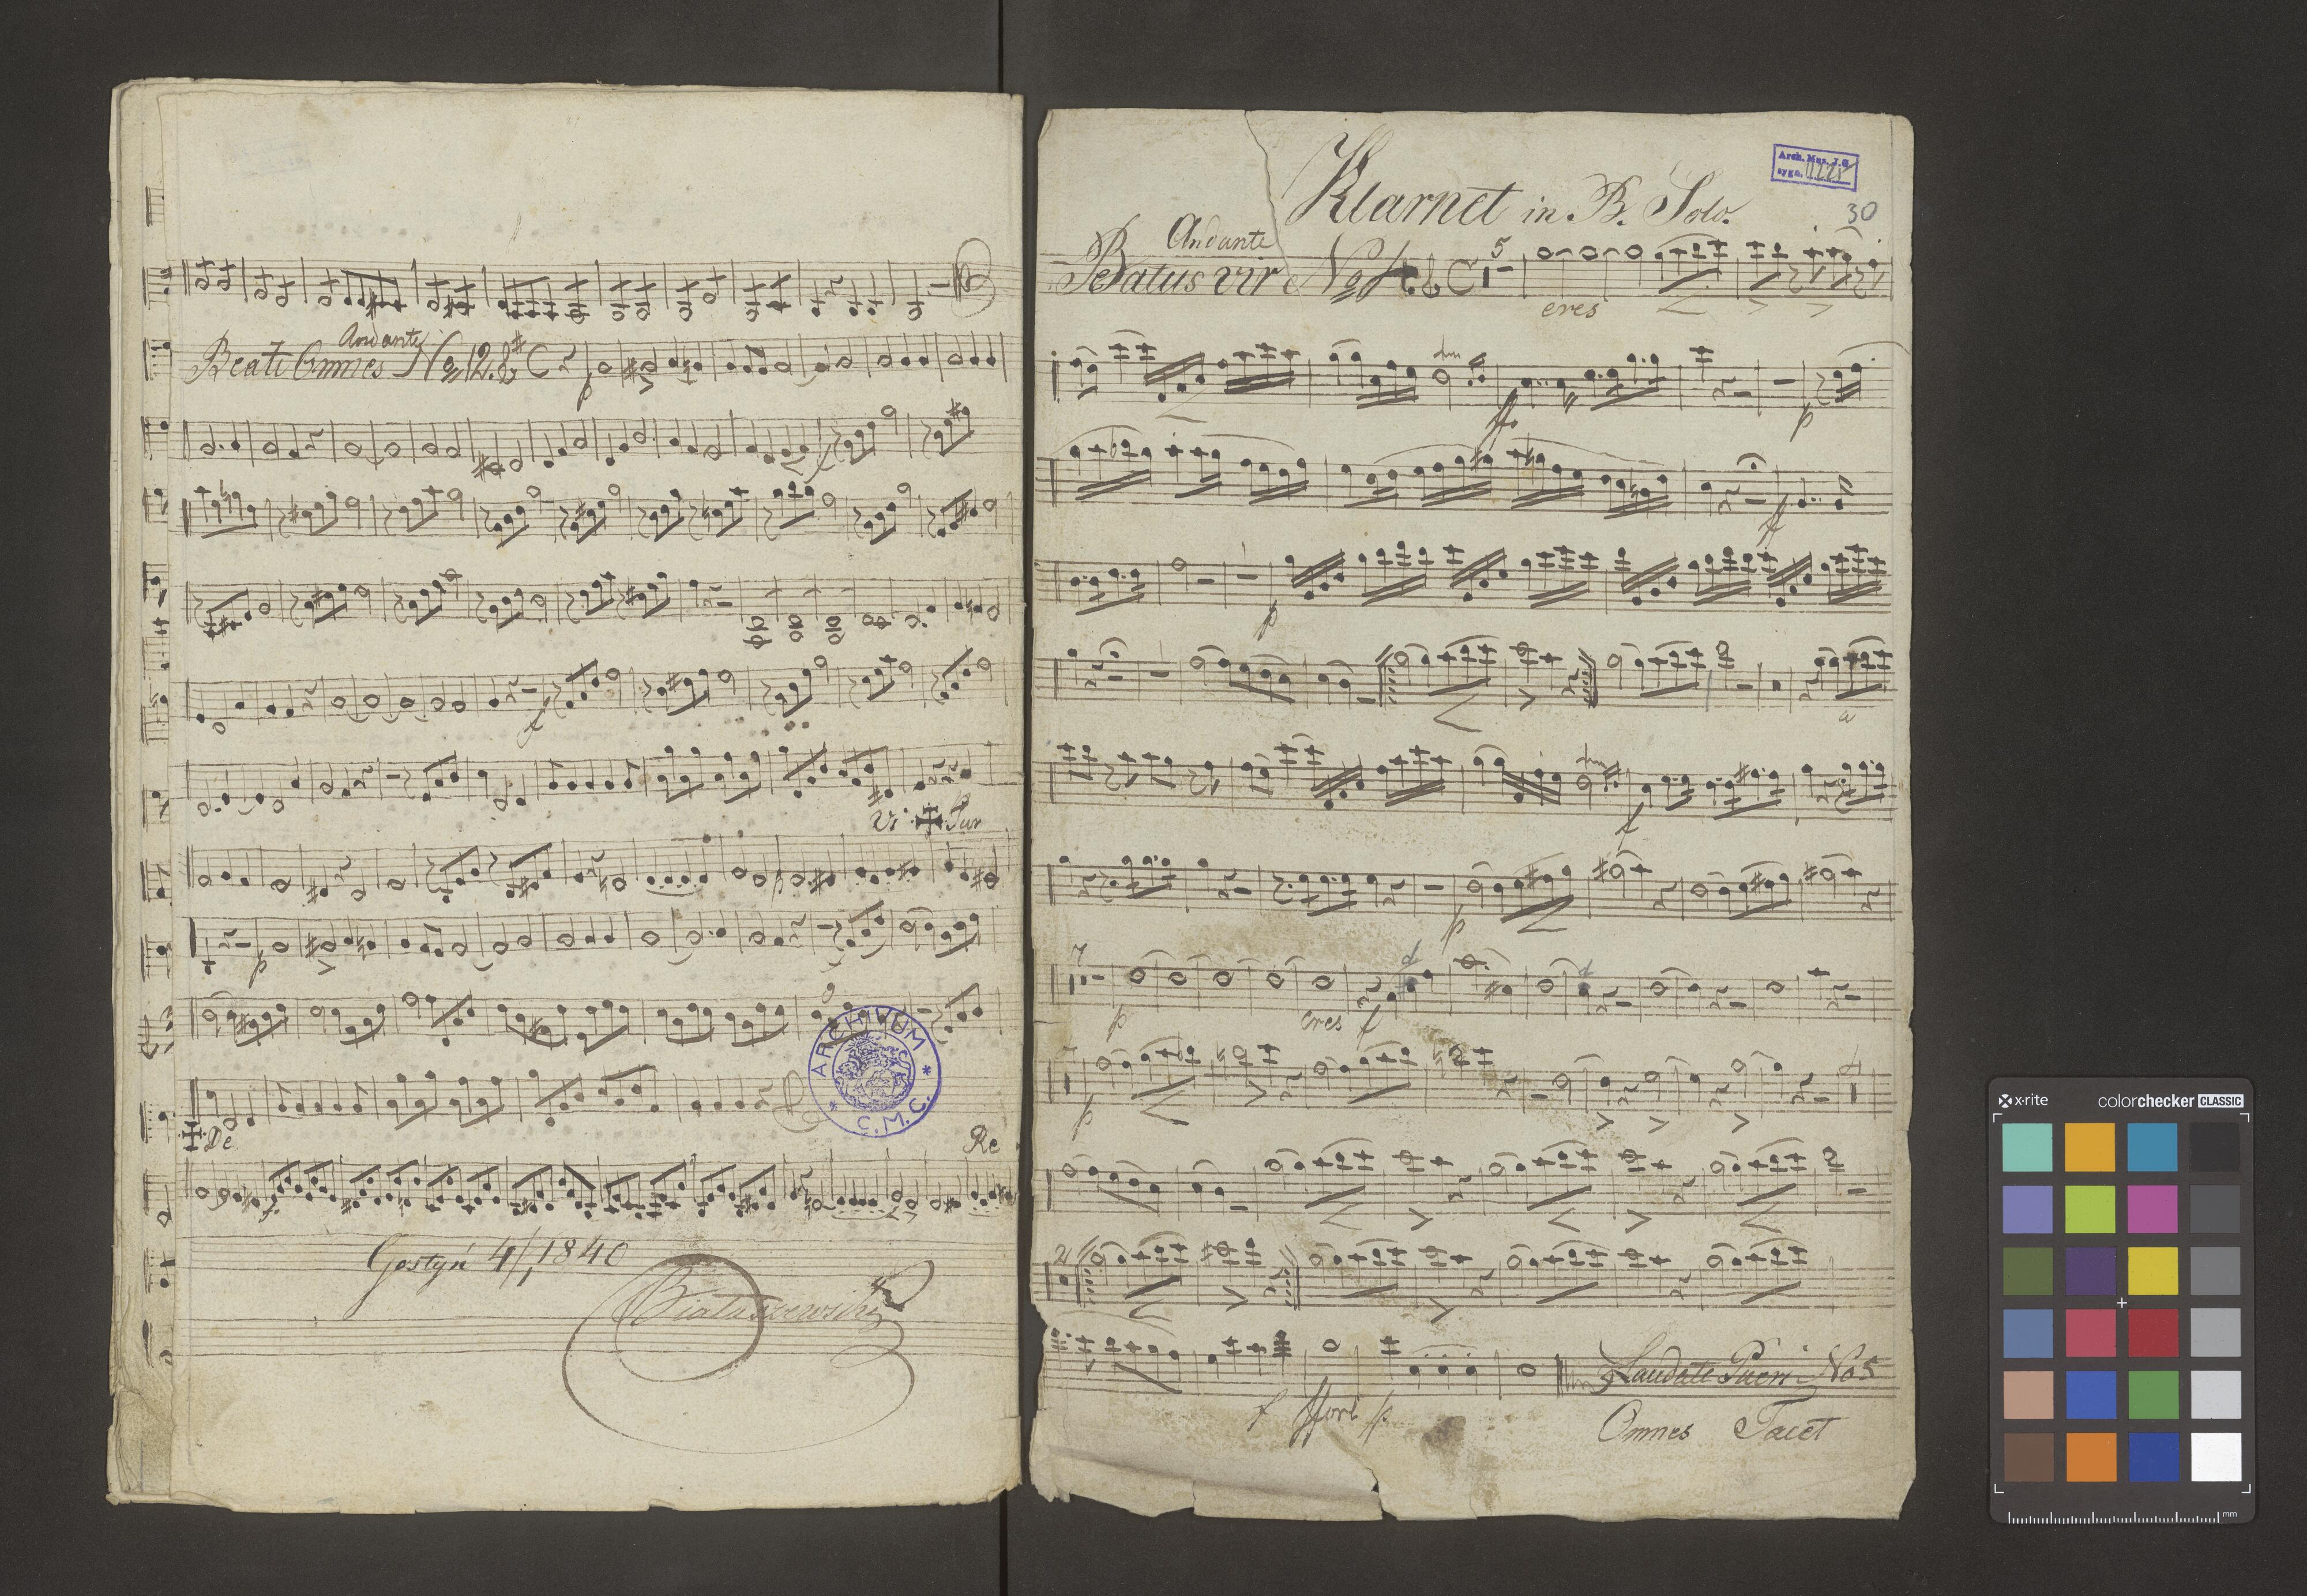 Andante
Beati Omnes No 12.
p
f
f
Vi Sur
p
p
De
Re
Gostyń 4/1 1840
ARCHIVUM * C.M.G. *
Klarnet in B. Solo.
Arch. Mus. J.G.
sygn.
30
Andante
Beatus vir No 4. C 5
cres
ff
p
ff
p
f
p
7
p cres f
p
2
f p
Laudate Pueri No 5
Omnes Tacet
x-rite colorchecker CLASSIC
mm